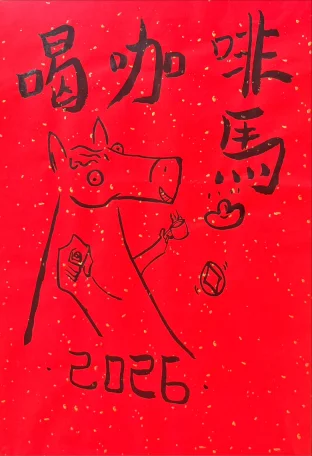 喝咖啡
馬
2026